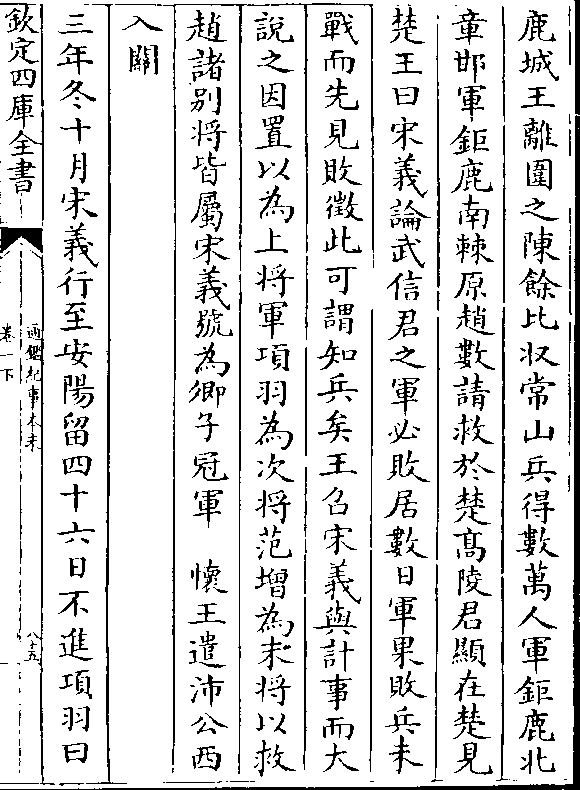 鹿城王離圍之陳餘北收常山兵得數萬人軍鉅鹿北
章邯軍鉅鹿南棘原趙數請救於楚髙陵君顯在楚見
楚王曰宋義論武信君之軍必敗居數日軍果敗兵未
戰而先見敗徵此可謂知兵矣王召宋義與計事而大
說之因置以為上將軍項羽為次將范增為末將以救
趙諸别將皆屬宋義號為卿子冠軍　懷王遣沛公西
入關
三年冬十月宋義行至安陽留四十六日不進項羽曰
欽定四庫全書
通鑑紀事本末
卷一下
八十五